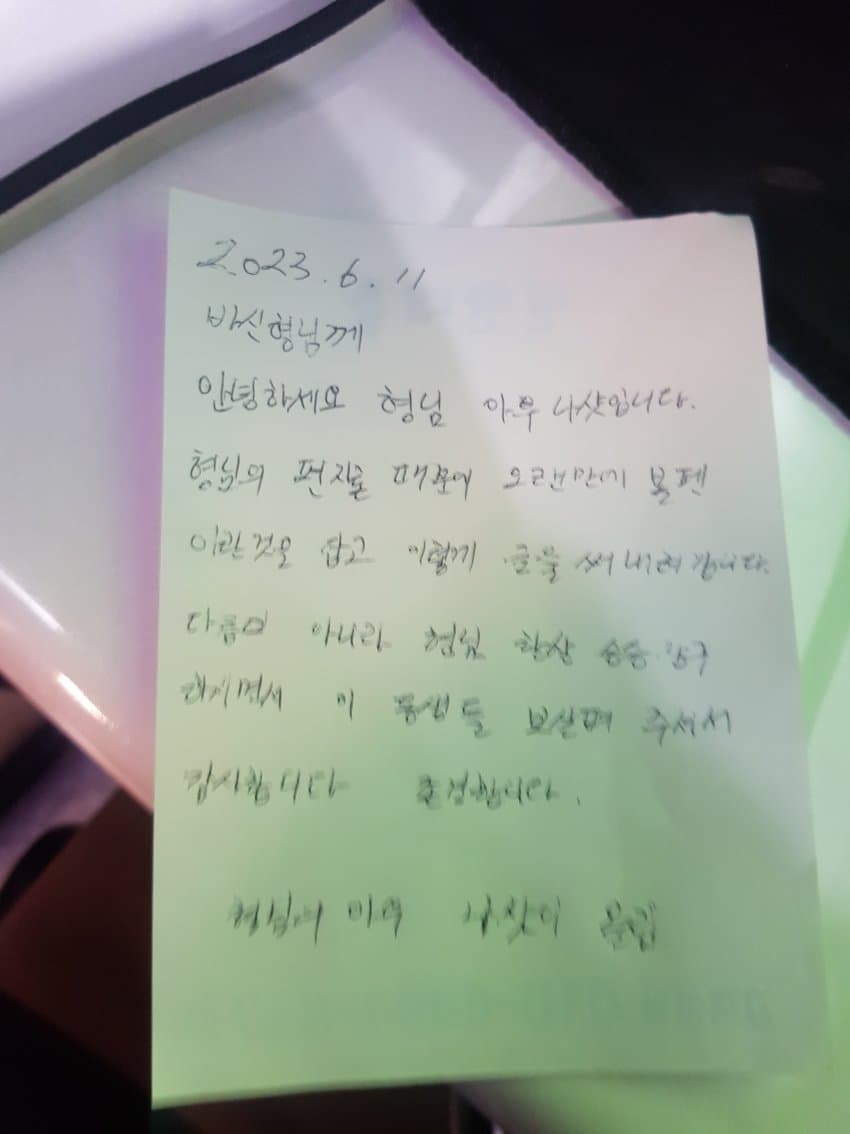 2023. 6. 11
바신형님께
안녕하세요 형님 아우 나샷입니다.
형님의 편지를 때문에 오랜만에 볼펜
이란것을 잡고 이렇게 글을 써 내려 갑니다.
다름이 아니라 형님 항상 승승 장구
하시면서 이 동생들 보살펴 주셔서
감사합니다 존경합니다.
형님의 아우 나샷이 올림